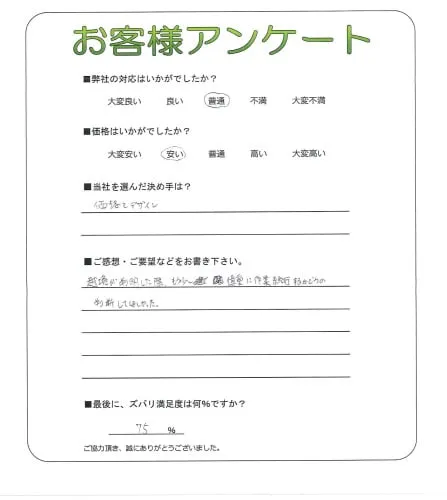 お客様アンケート
■弊社の対応はいかがでしたか？
大変良い 良い 普通 不満 大変不満
■価格はいかがでしたか？
大変安い 安い 普通 高い 大変高い
■当社を選んだ決め手は？
価格とデザイン
■ご感想・ご要望などをお書き下さい。
した際、 慎重に作業 するかどうか
判断してほしかった。
■最後に、ズバリ満足度は何%ですか？
75 %
ご協力頂き、誠にありがとうございました。